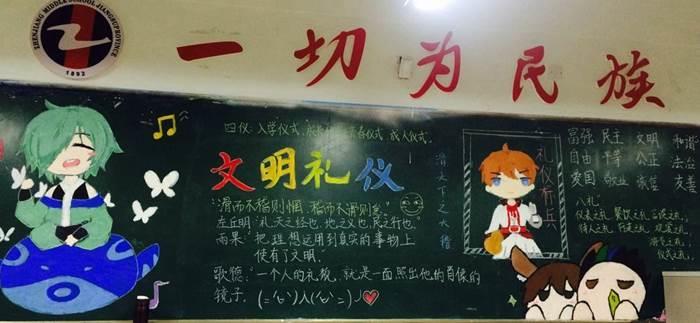 ZHENJIANG MIDDLE SCHOOL JIANGSU PROVINCE
1892
一切为民族
四仪：入学仪式、成长仪式、青春仪式、成人仪式.
文明礼仪
滑天下之大稽
"滑而不稽则惘，稽而不滑则
左丘明："礼，天之经也，地之义也，民之行也."
雨果："把理想运用到真实的事物上
便有了文明."
歌德："一个人的礼貌，就是一面照出他的肖像的
镜子.
礼仪标兵
富强 民主 文明 和谐
自由 平等 公正 法治
爱国 敬业 诚信 友善
八礼：
仪表之礼 餐饮之礼 言谈之礼
待人之礼 行走之礼 观赏之礼
游览之礼
仪式之礼.